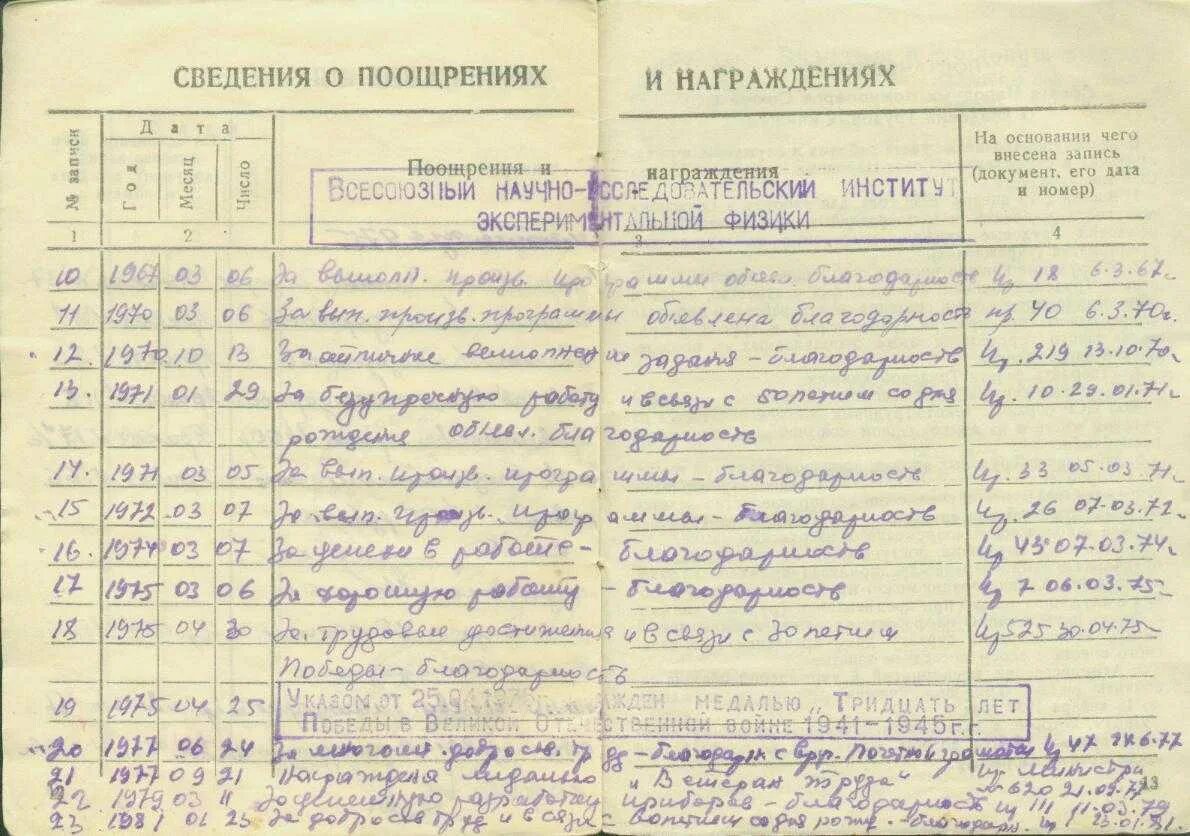 СВЕДЕНИЯ О ПООЩРЕНИЯХ И НАГРАЖДЕНИЯХ
№ записи
Дата
Год Месяц Число
Поощрения и награждения
На основании чего внесена запись (документ, его дата и номер)
ВСЕСОЮЗНЫЙ НАУЧНО-ИССЛЕДОВАТЕЛЬСКИЙ ИНСТИТУТ
ЭКСПЕРИМЕНТАЛЬНОЙ ФИЗИКИ
1 2 3 4
10 1967 03 06 За выполн. произв. программы объявл. благодарность 18 6.3.67г.
11 1970 03 06 За вып. произв. программы объявлена благодарность 40 6.3.70г.
12. 1970 10 13 За отличное выполнение задания - благодарность 219 13.10.70г.
13. 1971 01 29 За безупречную работу и в связи с 50 летием со дня 10 - 29.01.71г.
рождения объявл. благодарность
14. 1971 03 05 За вып. произв. программы - благодарность 33 05.03.71г.
15 1972 03 07 За вып. произв. программы - благодарность 26 07.03.72г.
16. 1974 03 07 За успехи в работе - благодарность 43 07.03.74г.
17 1975 03 06 За хорошую работу - благодарность 7 06.03.75г.
18 1975 04 30 За трудовые достижения и в связи с 30 летием 525 30.04.75г.
Победы - благодарность
19 1975 04 25 УКАЗОМ ОТ 25.04. МЕДАЛЬЮ „ТРИДЦАТЬ ЛЕТ
ПОБЕДЫ В ВЕЛИКОЙ ОТЕЧЕСТВЕННОЙ ВОЙНЕ 1941-1945 г.г.
20 1977 06 24 За многолет. добросов. труд - благодарн. с вруч. Почетной грамоты 47
21 1977 09 21 Награжден медалью „Ветеран труда" министра № 620 21.09.77
13
22 1979 03 11 За разработку приборов - благодарность 111 11.03.79
23 1981 01 23 За добросов. труд и в связи с летием со дня рожд. - благодарн.